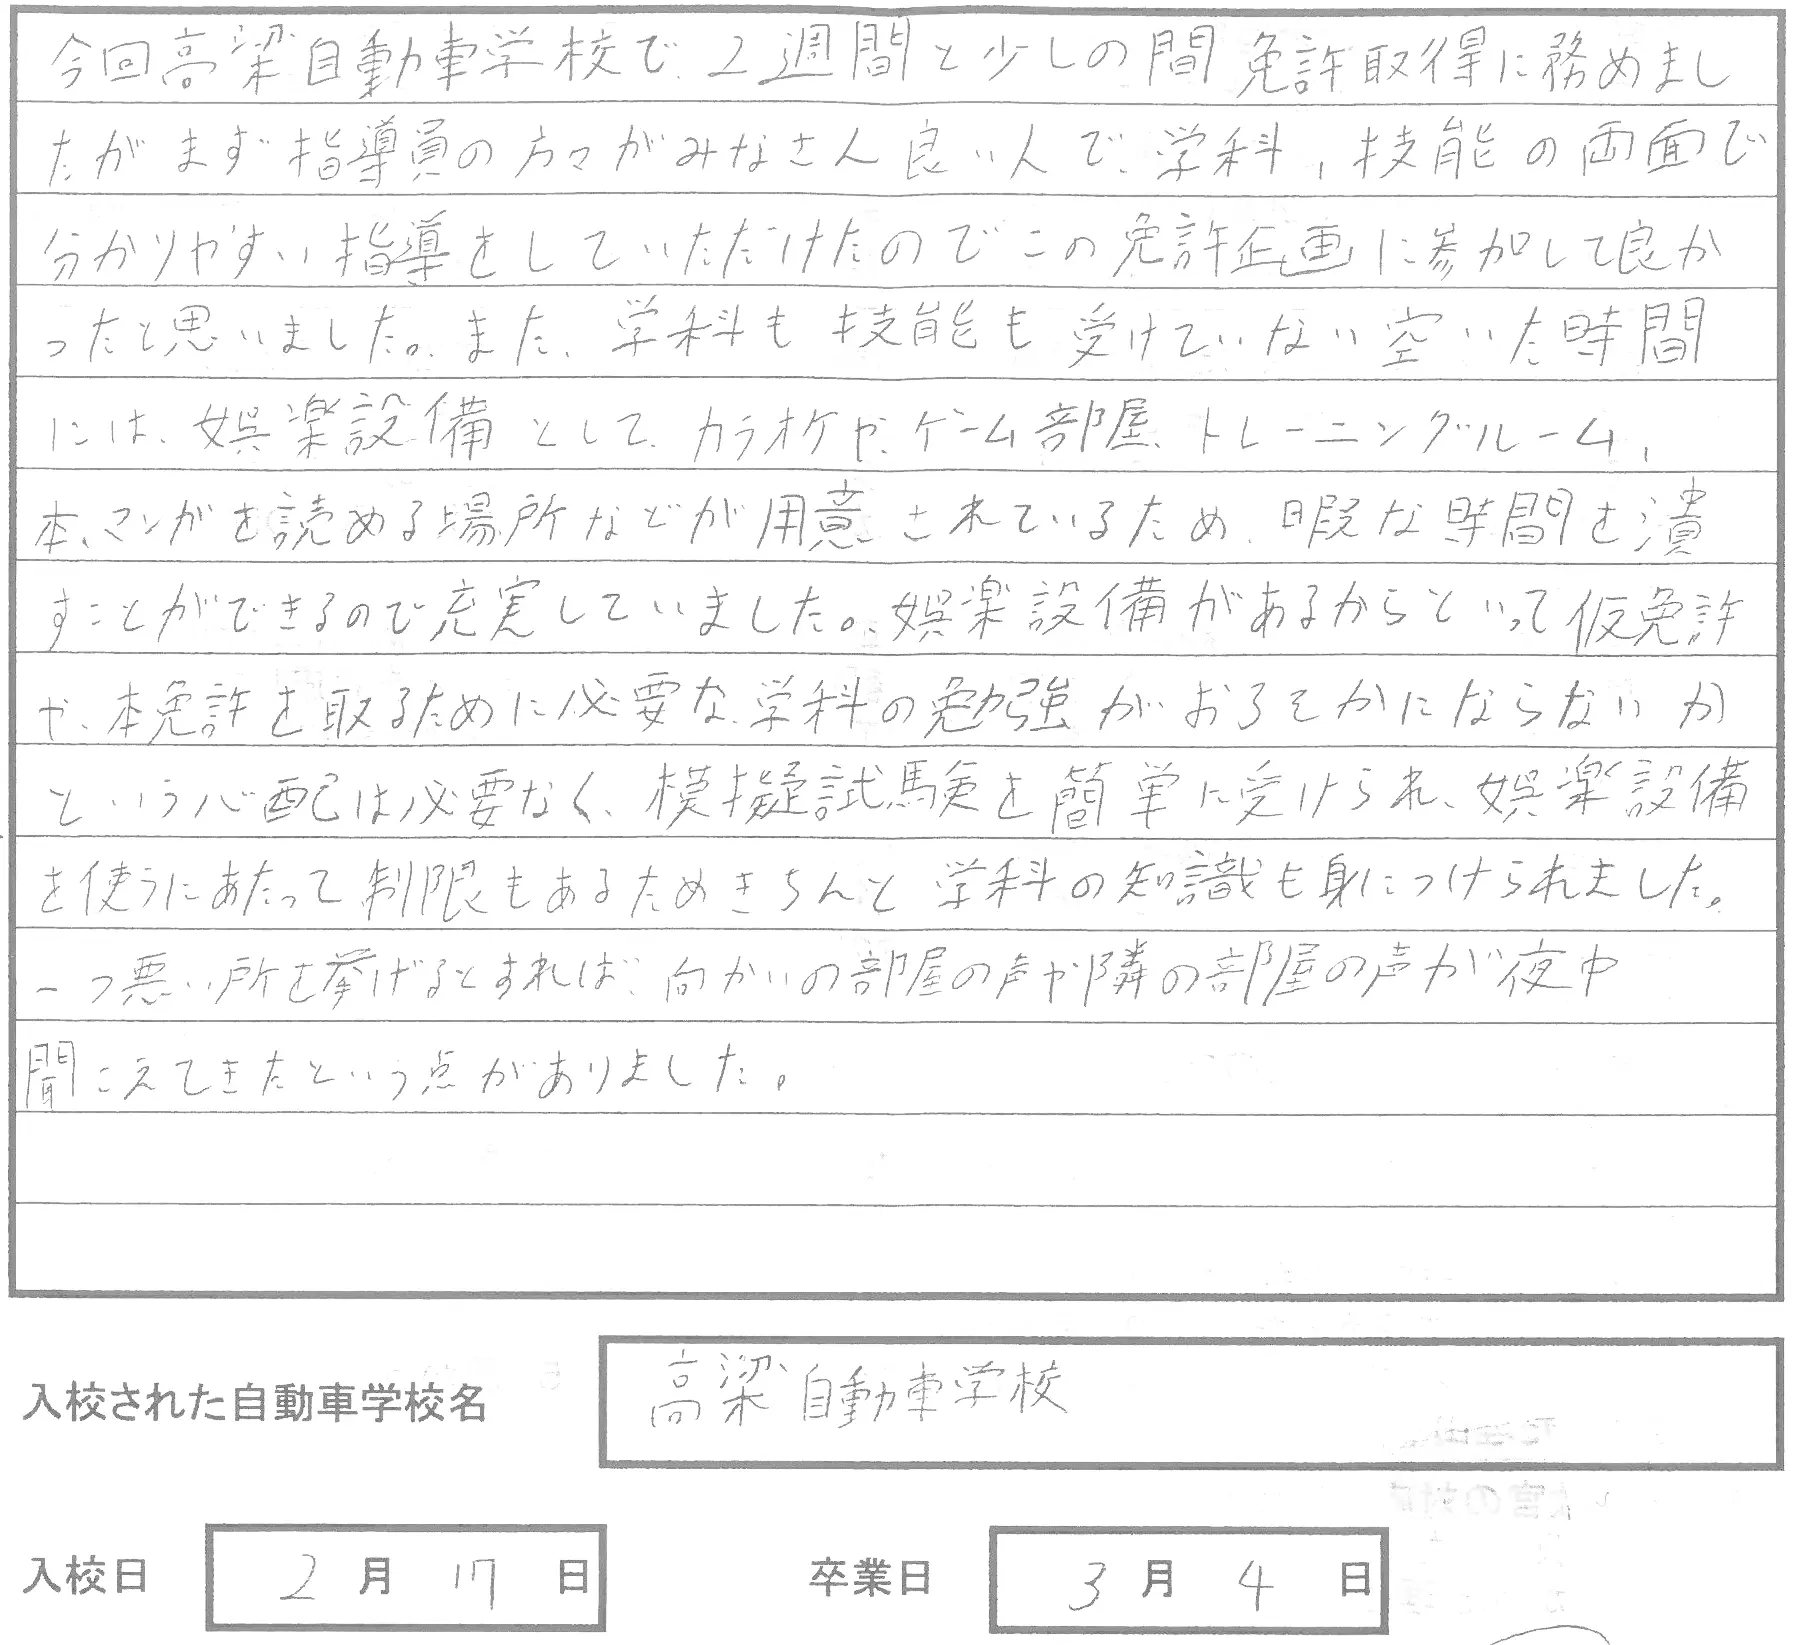 今回高梁自動車学校で、2週間と少しの間免許取得に務めまし
たがまず指導員の方々がみなさん良い人で、学科,技能の両面で
分かりやすい指導をしていただけたのでこの免許企画に参加して良か
ったと思いました。また、学科も技能も受けていない空いた時間
には、娯楽設備として、カラオケや、ゲーム部屋、トレーニングルーム,
本、マンガを読める場所などが用意されているため、暇な時間を潰
すことができるので充実していました。娯楽設備があるからといって仮免許
や、本免許を取るために必要な学科の勉強がおろそかにならないか
という心配は必要なく、模擬試験を簡単に受けられ、娯楽設備
を使うにあたって制限もあるためきちんと学科の知識も身につけられました。
一つ悪い所を挙げるとすれば、向かいの部屋の声や隣の部屋の声が夜中
聞こえてきたという点がありました。
入校された自動車学校名 高梁自動車学校
入校日 2月17日 卒業日 3月4日